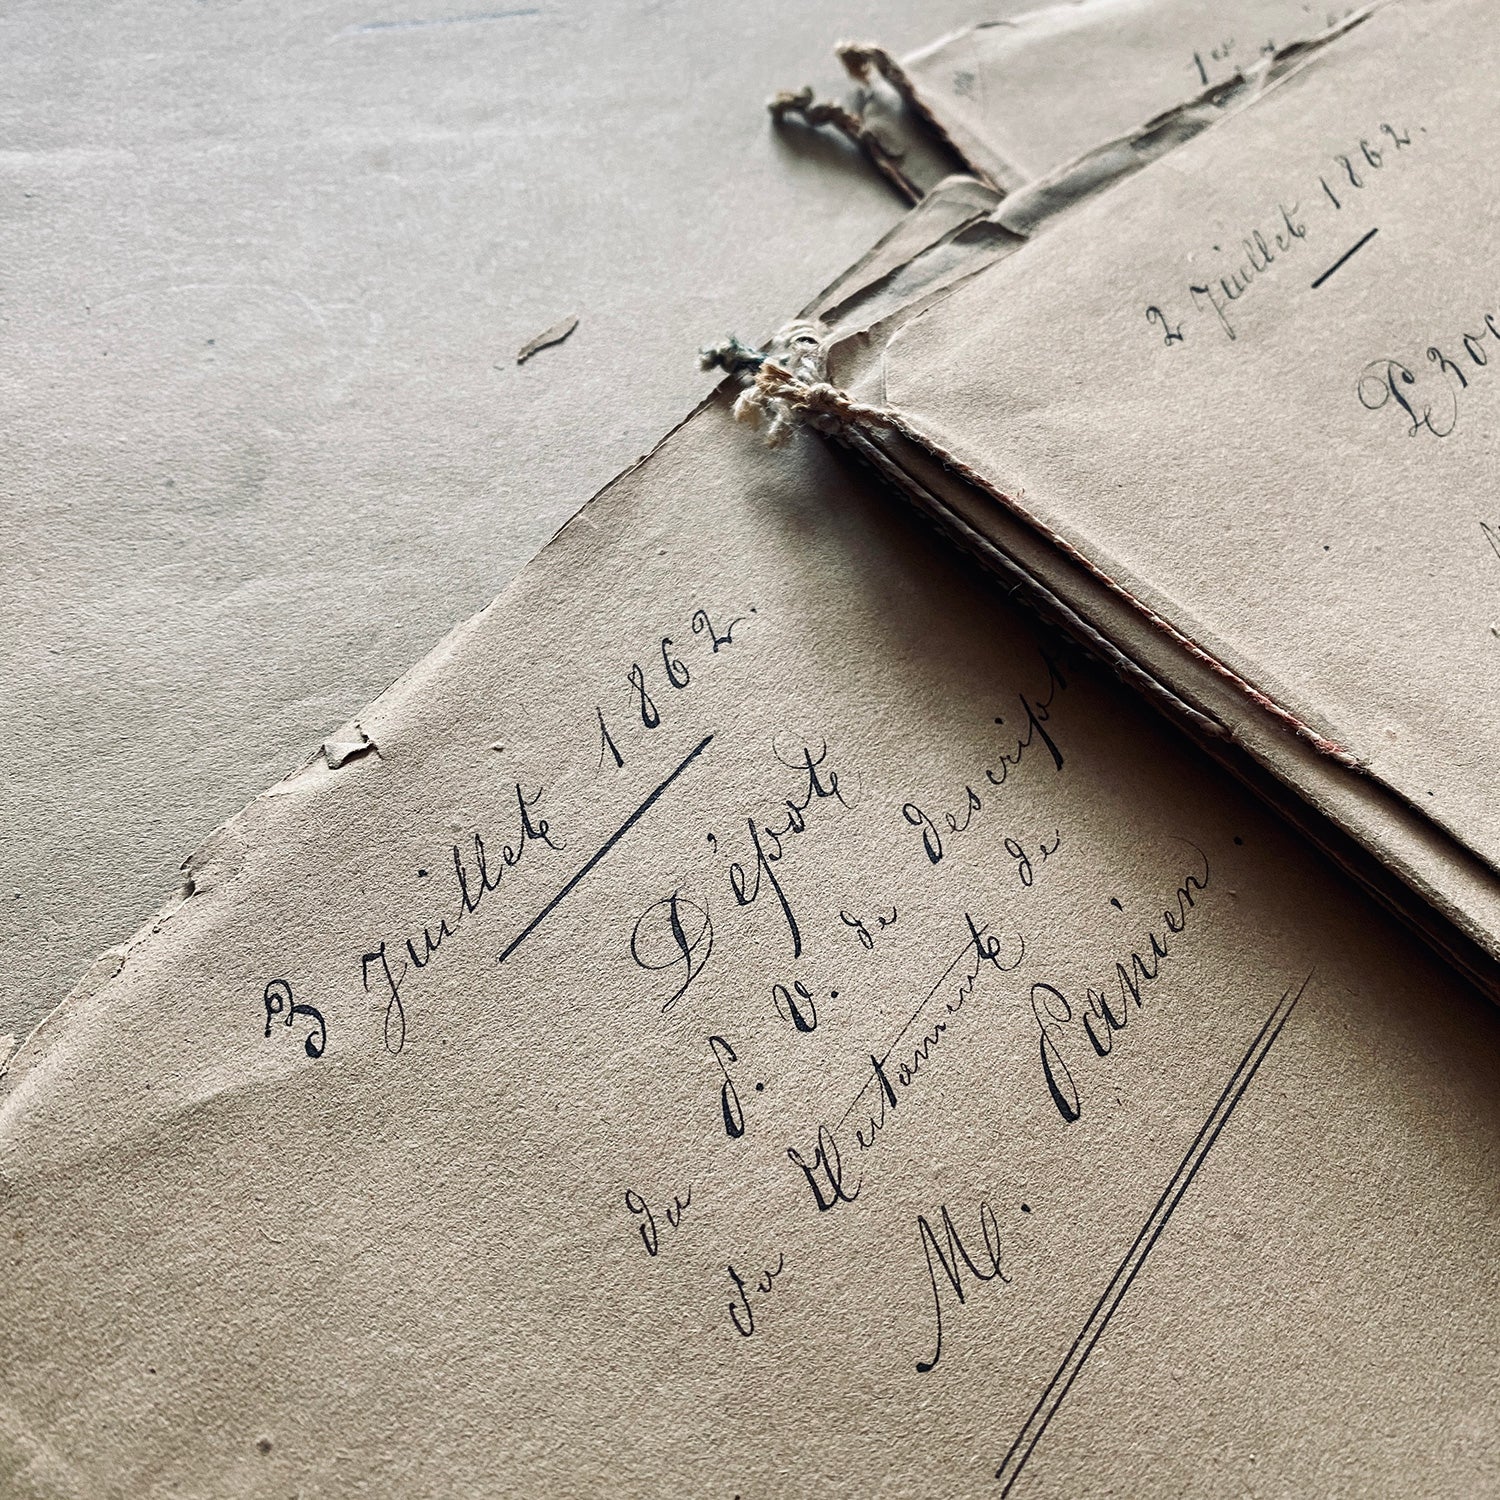 1er
2 Juillet 1862.
3 Juillet 1862.
Dépôt
du P. V. de descript
du Testament de
M. Panien.